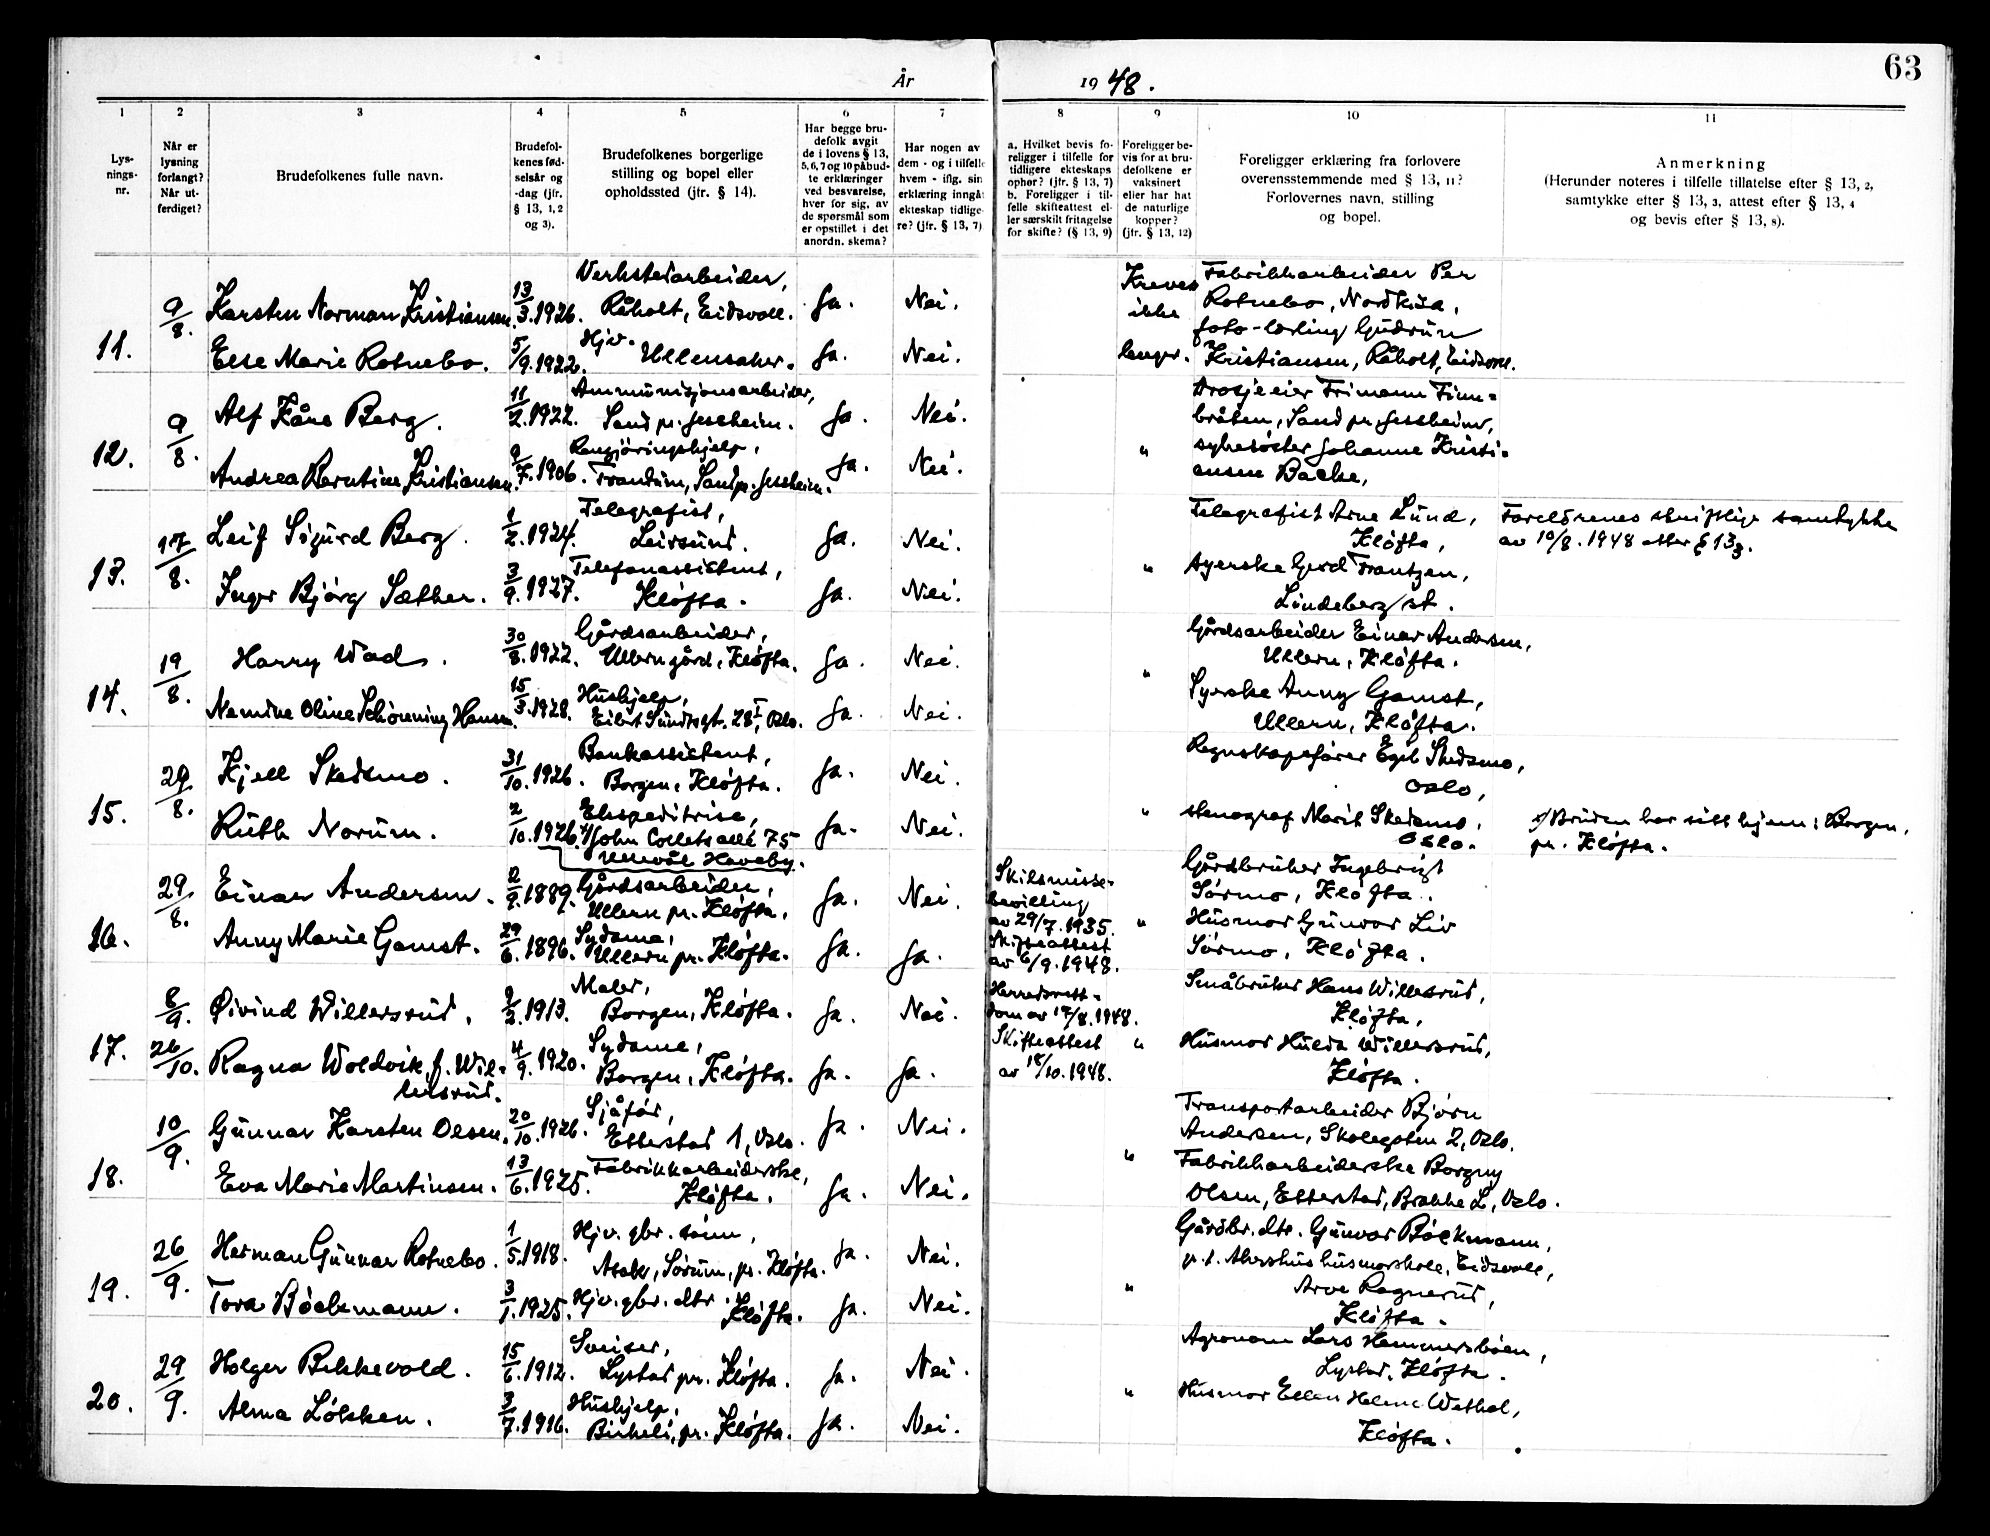 63
År 1948.
1 2 3 4 5 6 7 8 9 10 11
Lys-
nings-
nr.
Når er
lysning
forlangt?
Når ut-
ferdiget?
Brudefolkenes fulle navn.
Brudefol-
kenes fød-
selsår og
-dag (jfr.
§ 13, 1, 2
og 3).
Brudefolkenes borgerlige
stilling og bopel eller
opholdssted (jfr. § 14).
Har begge bru-
defolk avgit
de i lovens § 13,
5, 6, 7 og 10 påbud-
te erklæringer
ved besvarelse,
hver for sig, av
de spørsmål som
er opstillet i det
anordn. skema?
Har nogen av
dem - og i tilfelle
hvem - iflg. sin
erklæring inngått
ekteskap tidlige-
re? (jfr. § 13, 7)
a. Hvilket bevis fo-
religger i tilfelle for
tidligere ekteskaps
ophør? (jfr. § 13, 7)
b. Foreligger i til-
felle skifteattest el-
ler særskilt fritagelse
for skifte? (§ 13, 9)
Foreligger be-
vis for at bru-
defolkene er
vaksinert
eller har hat
de naturlige
kopper?
(jfr. § 13, 12)
Foreligger erklæring fra forlovere
overensstemmende med § 13, 11?
Forlovernes navn, stilling
og bopel.
Anmerkning
(Herunder noteres i tilfelle tillatelse efter § 13, 2,
samtykke efter § 13, 3, attest efter § 13, 4
og bevis efter § 13, 8).
11. 9/8. Karsten Norman Kristiansen. 13/3.1926. Verkstedarbeider,
Råholt, Eidsvoll. Ja. Nei.
Else Marie Rotnebo. 5/9.1922. Hjv.
Ullensaker. Ja. Nei.
Kreves
ikke
lenger.
Fabrikkarbeider Per
Rotnebo, Nordkisa,
foto-lærling Gudrun
Kristiansen, Råholt, Eidsvoll.
12. 9/8. Alf Kåre Berg. 11/2.1922. Ammunisjonsarbeider,
Sand pr. Jessheim. Ja. Nei.
Andrea Berntine Kristiansen. 9/7.1906. Rengjöringshjelp,
Trandum, Sand pr. Jessheim. Ja. Nei.
"
Drosjeeier Trimann Finn-
bråten, Sand pr. Jessheim,
sykesöster Johanne Kristi-
ansen Bakke,
13. 17/8. Leif Sigurd Berg. 1/2.1924. Telegrafist,
Leirsund. Ja. Nei.
Inger Bjørg Sæther. 3/9.1927. Telefonassistent,
Kløfta. Ja. Nei.
"
Telegrafist Arne Lund,
Kløfta,
Gerd Frantzen,
Lindeberg st.
Foreldrenes skriftlige samtykke
av 10/8.1948 etter § 13 3.
14. 19/8. Harry Wad. 30/8.1922. Gårdsarbeider,
Ullern gård, Kløfta. Ja. Nei.
Namine Oline Schönning Hansen. 15/3.1928. Hushjelp,
Eilert Sundtsgt. 28 I, Oslo. Ja. Nei.
"
Gårdsarbeider Einar Andersen,
Ullern, Kløfta.
Syerske Anny Gamst,
Ullern, Kløfta.
15. 29/8. Kjell Skedsmo. 31/10.1926. Bankassistent,
Borgen, Kløfta. Ja. Nei.
Ruth Norum. 2/10.1926. Ekspeditrise,
x) John Colletsallé 75
Ullevål Haveby. Ja. Nei.
"
Regnskapsfører Egil Skedsmo,
Oslo,
stenograf Marit Skedsmo,
Oslo.
x) Bruden har sitt hjem i Borgen,
pr. Kløfta.
16. 29/8. Einar Andersen. 2/9.1889. Gårdsarbeider,
Ullern pr. Kløfta. Ja. Nei.
Anny Marie Gamst. 29/6.1896. Sydame,
Ullern pr. Kløfta. Ja. Ja.
Skilsmisse-
bevilling
av 29/7.1935.
Skifteattest
av 6/9.1948.
"
Gårdbruker Ingebrigt
Sørmo, Kløfta.
Husmor Gunvor Liv
Sørmo, Kløfta.
17. 8/9. 26/10. Øivind Willersrud. 9/2.1913. Maler,
Borgen, Kløfta. Ja. Nei.
Ragna Woldvik, f. Wil-
lersrud. 4/9.1920. Sydame,
Borgen, Kløfta. Ja. Ja.
Herredsrett-
dom av 17/8.1948.
Skifteattest
av 18/10.1948.
"
Småbruker Hans Willersrud,
Kløfta,
Husmor Hulda Willersrud,
Kløfta.
18. 10/9. Gunnar Karsten Olsen. 20/10.1926. Sjåför,
Etterstad 1, Oslo. Ja. Nei.
Eva Marie Martinsen. 13/6.1925. Fabrikkarbeiderske,
Kløfta. Ja. Nei.
"
Transportarbeider Bjørn
Andersen, Skolegaten 2, Oslo.
Fabrikkarbeiderske Borgny
Olsen, Etterstad, Brakke L, Oslo.
19. 26/9. Herman Gunnar Rotnebo. 1/5.1918. Hjv. gbr. sønn,
Asak, Sörum, pr. Kløfta. Ja. Nei.
Tora Böckmann. 3/1.1925. Hjv. gbr. dtr.
Kløfta. Ja. Nei.
"
Gårdbr. dtr. Gunvor Böckmann,
p.t. Akershus husmorskole, Eidsvoll,
Arve Ragnerud,
Kløfta.
20. 29/9. Holger Bekkevold. 15/6.1912. Sveiser,
Lystad pr. Kløfta. Ja. Nei.
Alma Lökken. 3/7.1916. Hushjelp,
Birkeli, pr. Kløfta. Ja. Nei.
"
Agronom Lars Hemmersbøen,
Lystad, Kløfta.
Husmor Ellen Helene Wethal,
Kløfta.